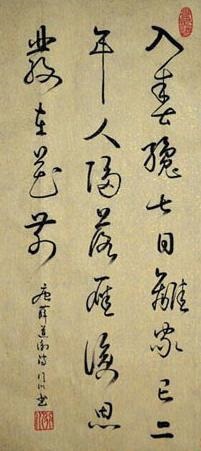 入春纔七日離家已二
年人歸落雁後思
發在花前
唐薛道衡詩 書